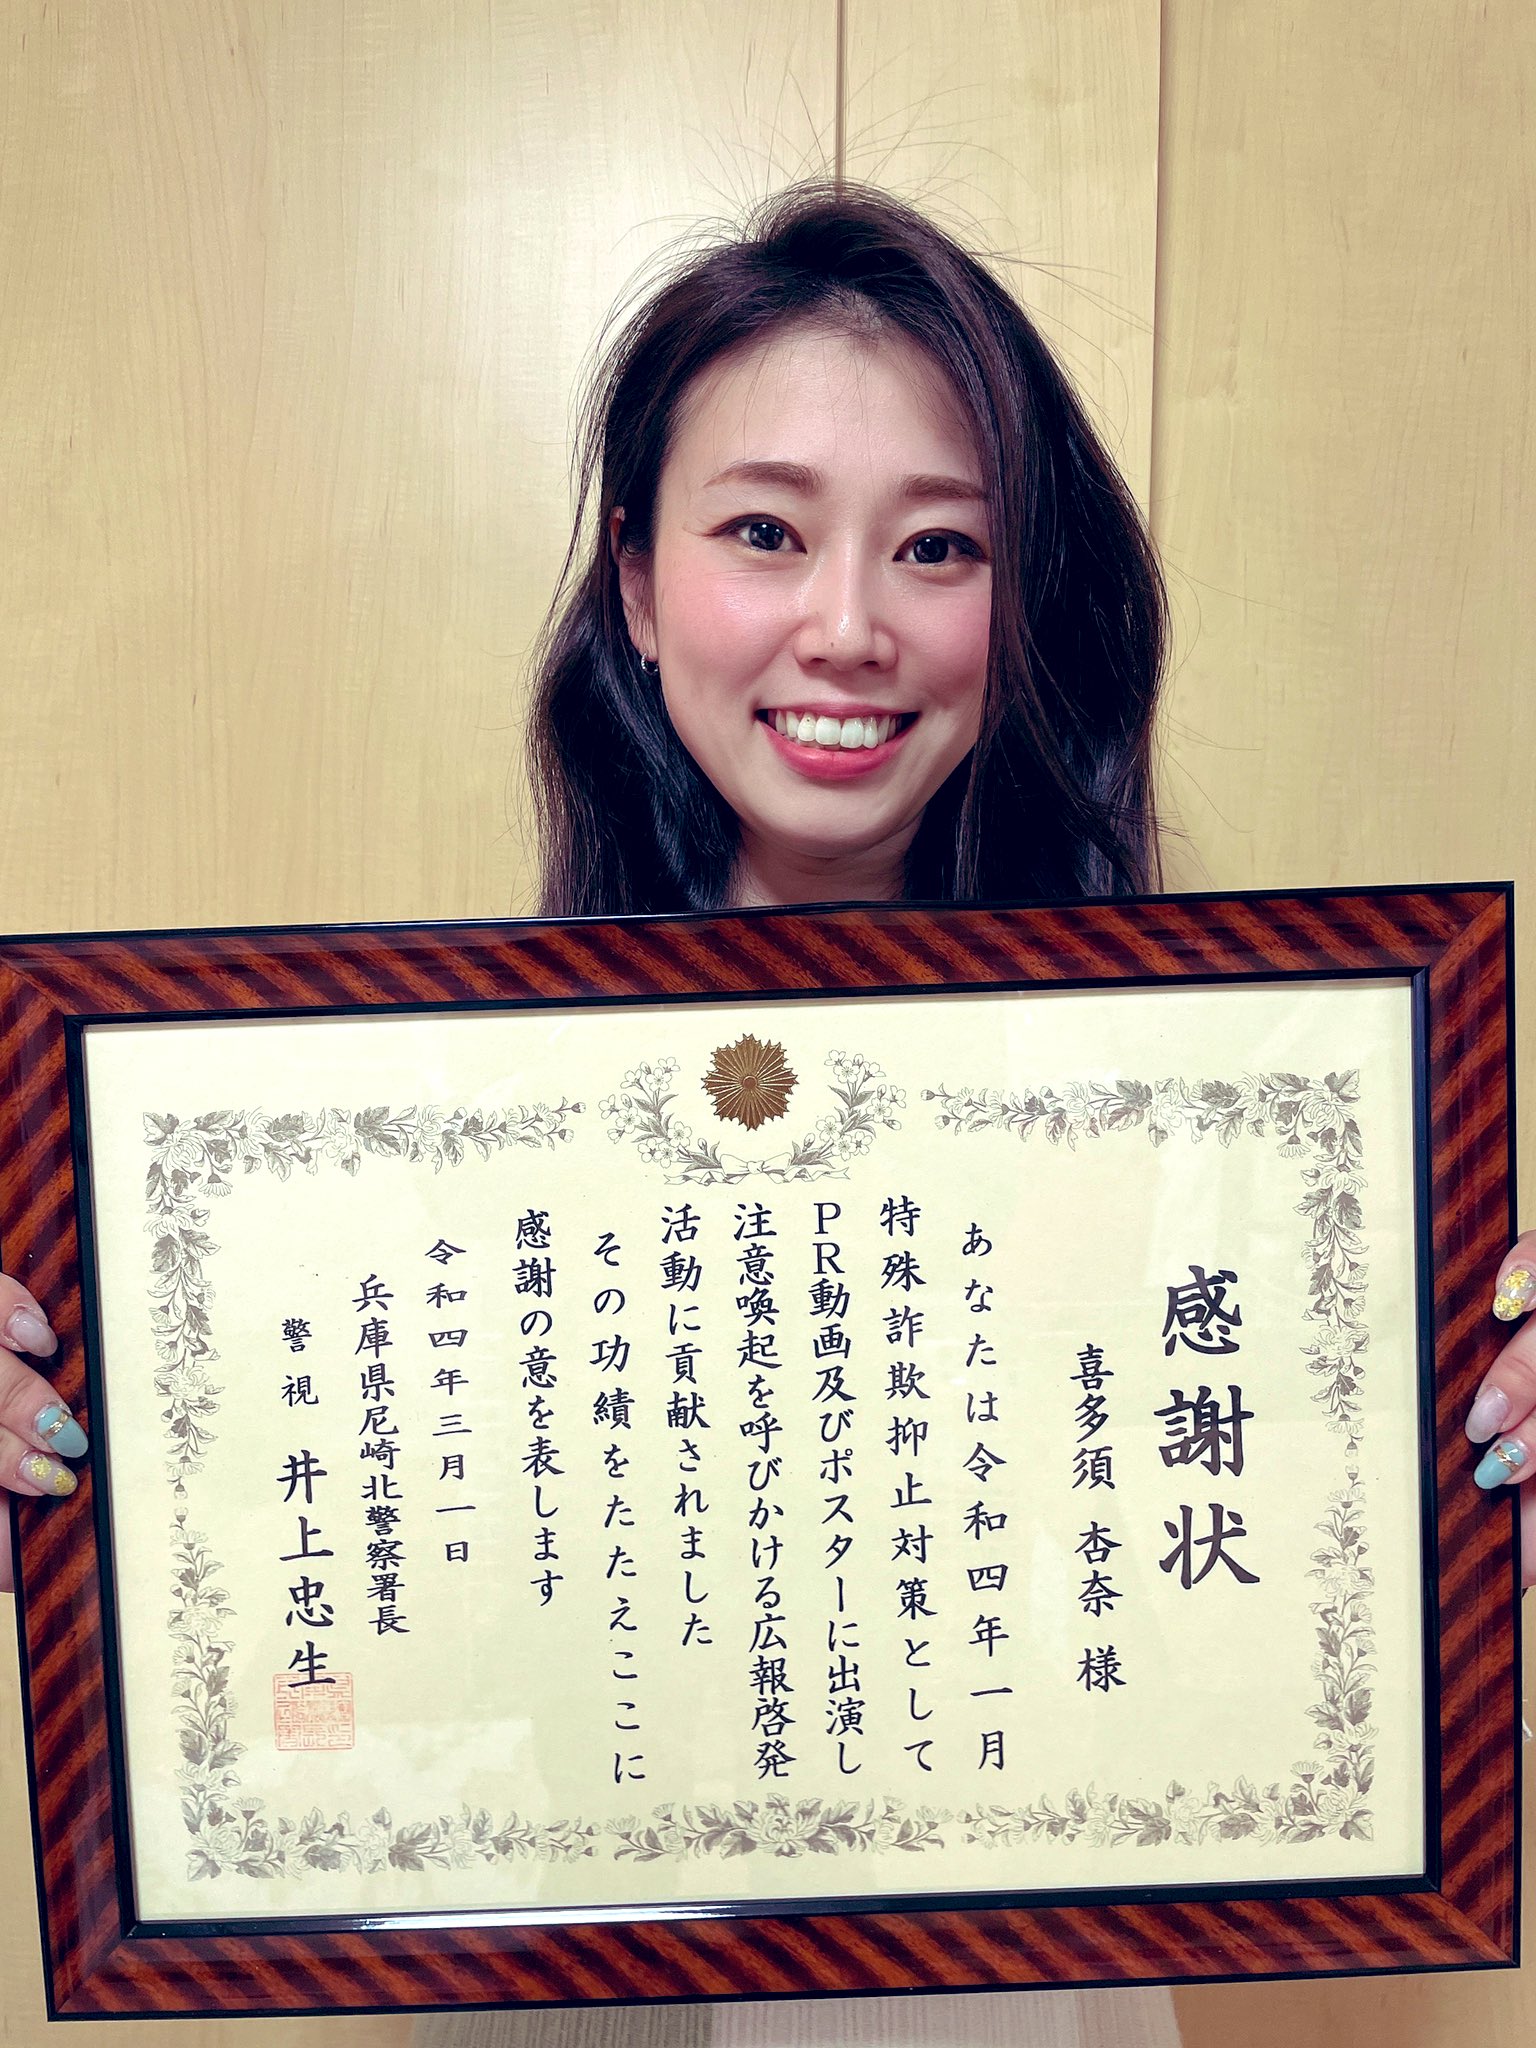 感謝状
喜多須 杏奈 様
あなたは令和四年一月
特殊詐欺抑止対策として
PR動画及びポスターに出演し
注意喚起を呼びかける広報啓発
活動に貢献されました
その功績をたたえここに
感謝の意を表します
令和四年三月一日
兵庫県尼崎北警察署長
警視 井上忠生